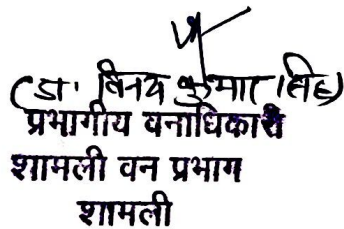 (डा. विनय कुमार सिंह)
प्रभागीय वनाधिकारी
शामली वन प्रभाग
शामली